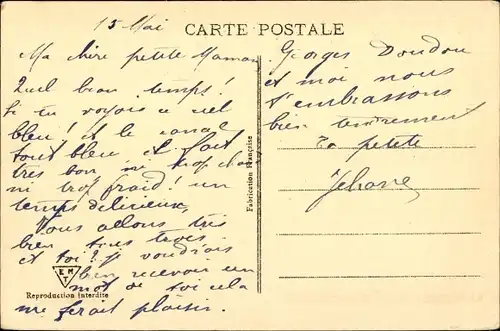 15 Mai
CARTE POSTALE
Ma chère petite Maman
Quel beau temps !
Si tu voyais ce ciel
bleu ! et le canal
tout bleu et fait
très bon, ni trop chaud
ni trop froid ! un
temps délicieux.
Nous allons très
bien tous trois
et toi ? Je voudrais
bien recevoir un
mot de toi cela
me ferait plaisir.
EMT
Reproduction interdite
Fabrication Française
Georges Doudou
et moi nous
t'embrassons
bien tendrement
Ta petite
Jehane